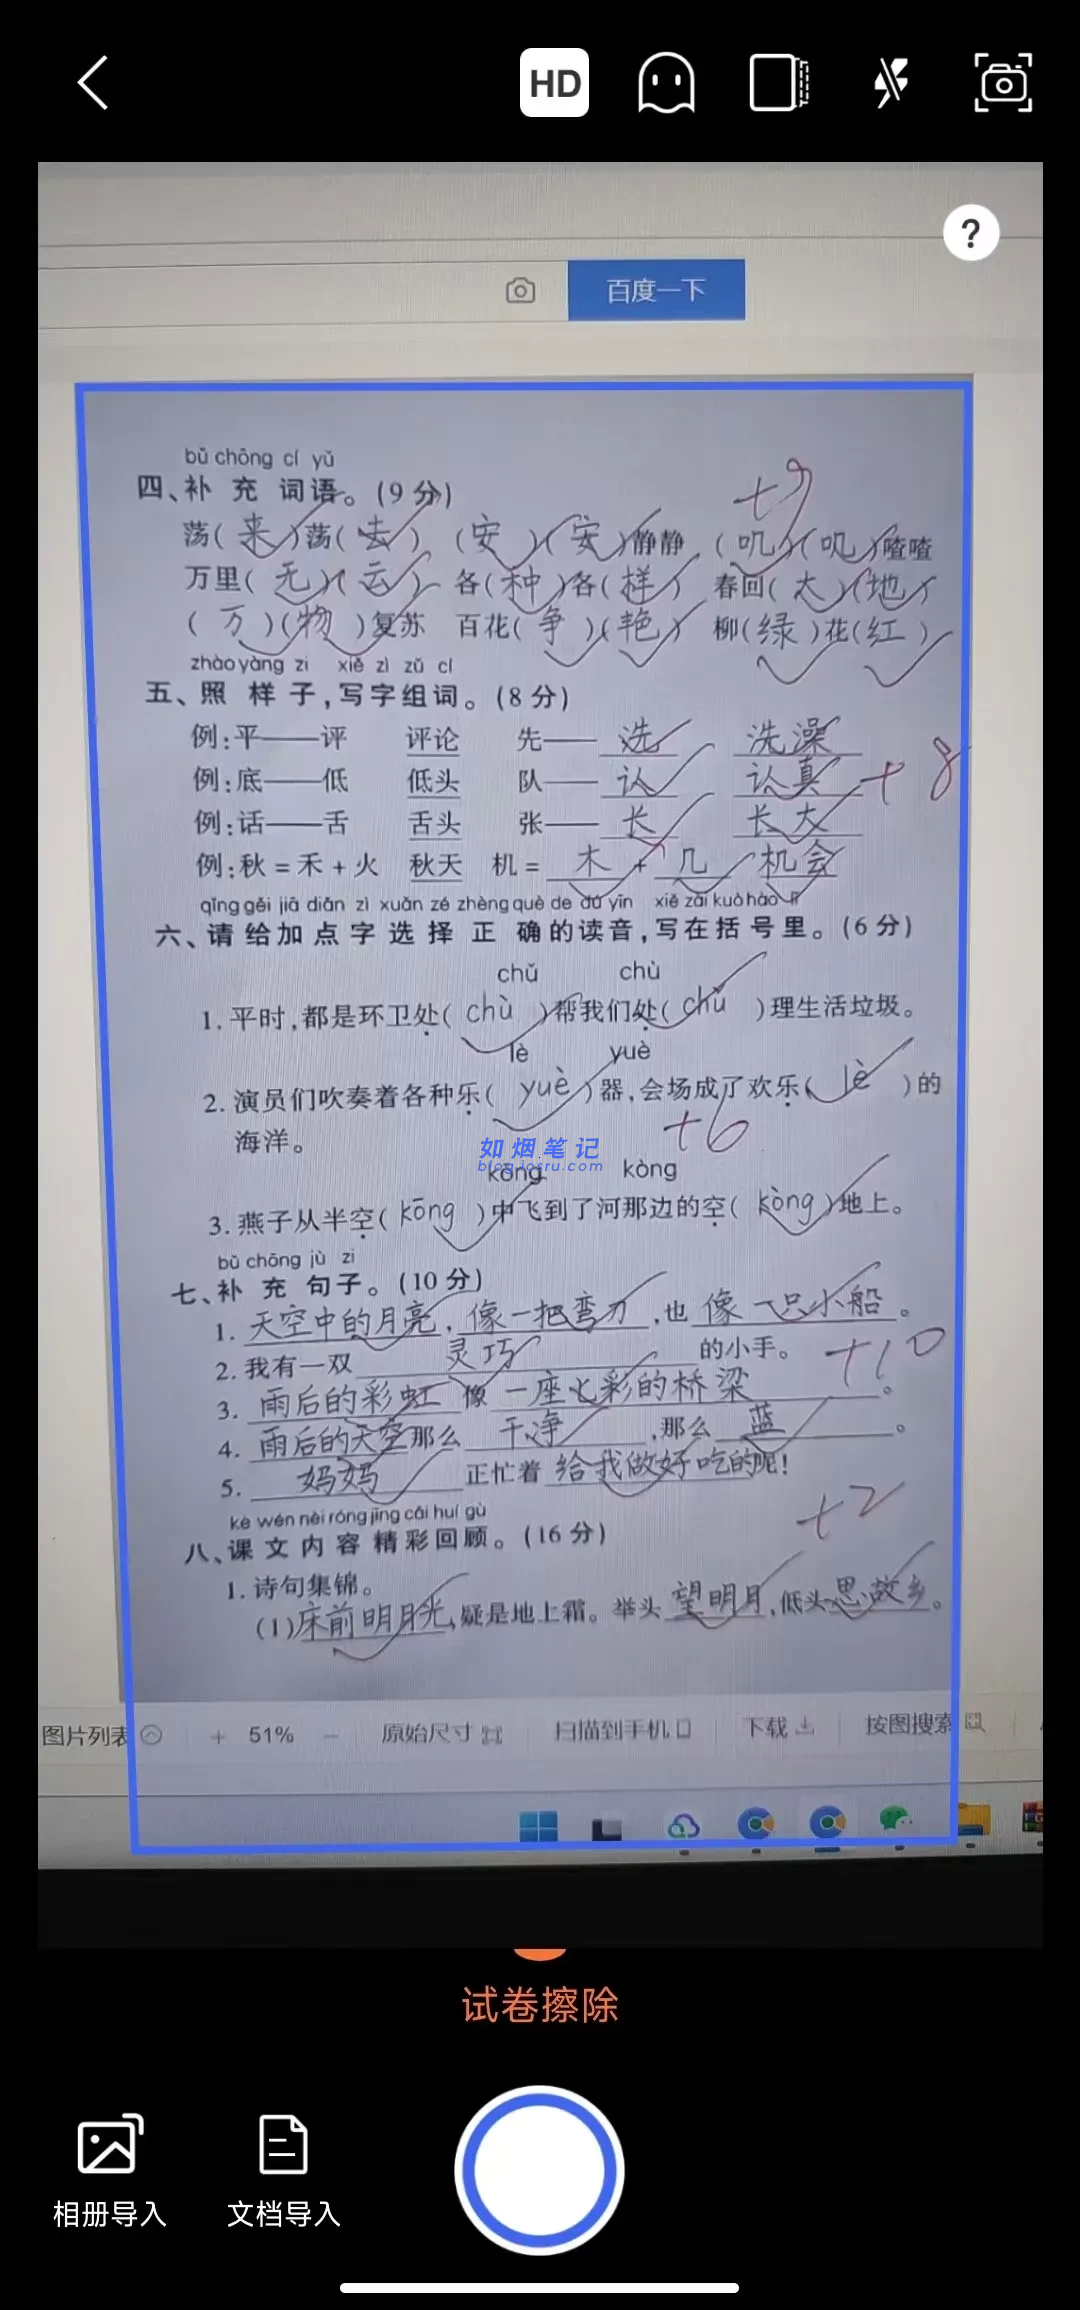 HD
?
百度一下
bǔ chōng cí yǔ
四、补 充 词语。(9分)
+9
荡(来)荡(去) (安)(安)静静 (叽)(叽)喳喳
万里(无)(云) 各(种)各(样) 春回(大)(地)
(万)(物)复苏 百花(争)(艳) 柳(绿)花(红)
zhào yàng zi xiě zì zǔ cí
五、照 样 子,写字组词。(8分)
例:平——评 评论 先——选 洗澡
例:底——低 低头 队——认 认真 +8
例:话——舌 舌头 张——长 长大
例:秋=禾+火 秋天 机=木+几 机会
qǐng gěi jiā diǎn zì xuǎn zé zhèng què de dú yīn xiě zài kuò hào lǐ
六、请给加点字选择正确的读音,写在括号里。(6分)
chǔ chù
1. 平时,都是环卫处(chù)帮我们处(chǔ)理生活垃圾。
lè yuè
2. 演员们吹奏着各种乐(yuè)器,会场成了欢乐(lè)的
海洋。
+6
如烟笔记
blog.iosru.com
kōng kòng
3. 燕子从半空(kōng)中飞到了河那边的空(kòng)地上。
bǔ chōng jù zi
七、补 充 句子。(10分)
1. 天空中的月亮,像一把弯刀,也像一只小船。
2. 我有一双灵巧的小手。
+10
3. 雨后的彩虹像一座七彩的桥梁。
4. 雨后的天空那么干净,那么蓝。
5. 妈妈正忙着给我做好吃的呢!
kè wén nèi róng jīng cǎi huí gù
八、课文内容精彩回顾。(16分)
+2
1. 诗句集锦。
(1)床前明月光,疑是地上霜。举头望明月,低头思故乡。
图片列表 + 51% − 原始尺寸 扫描到手机 下载 按图搜索
试卷擦除
相册导入 文档导入